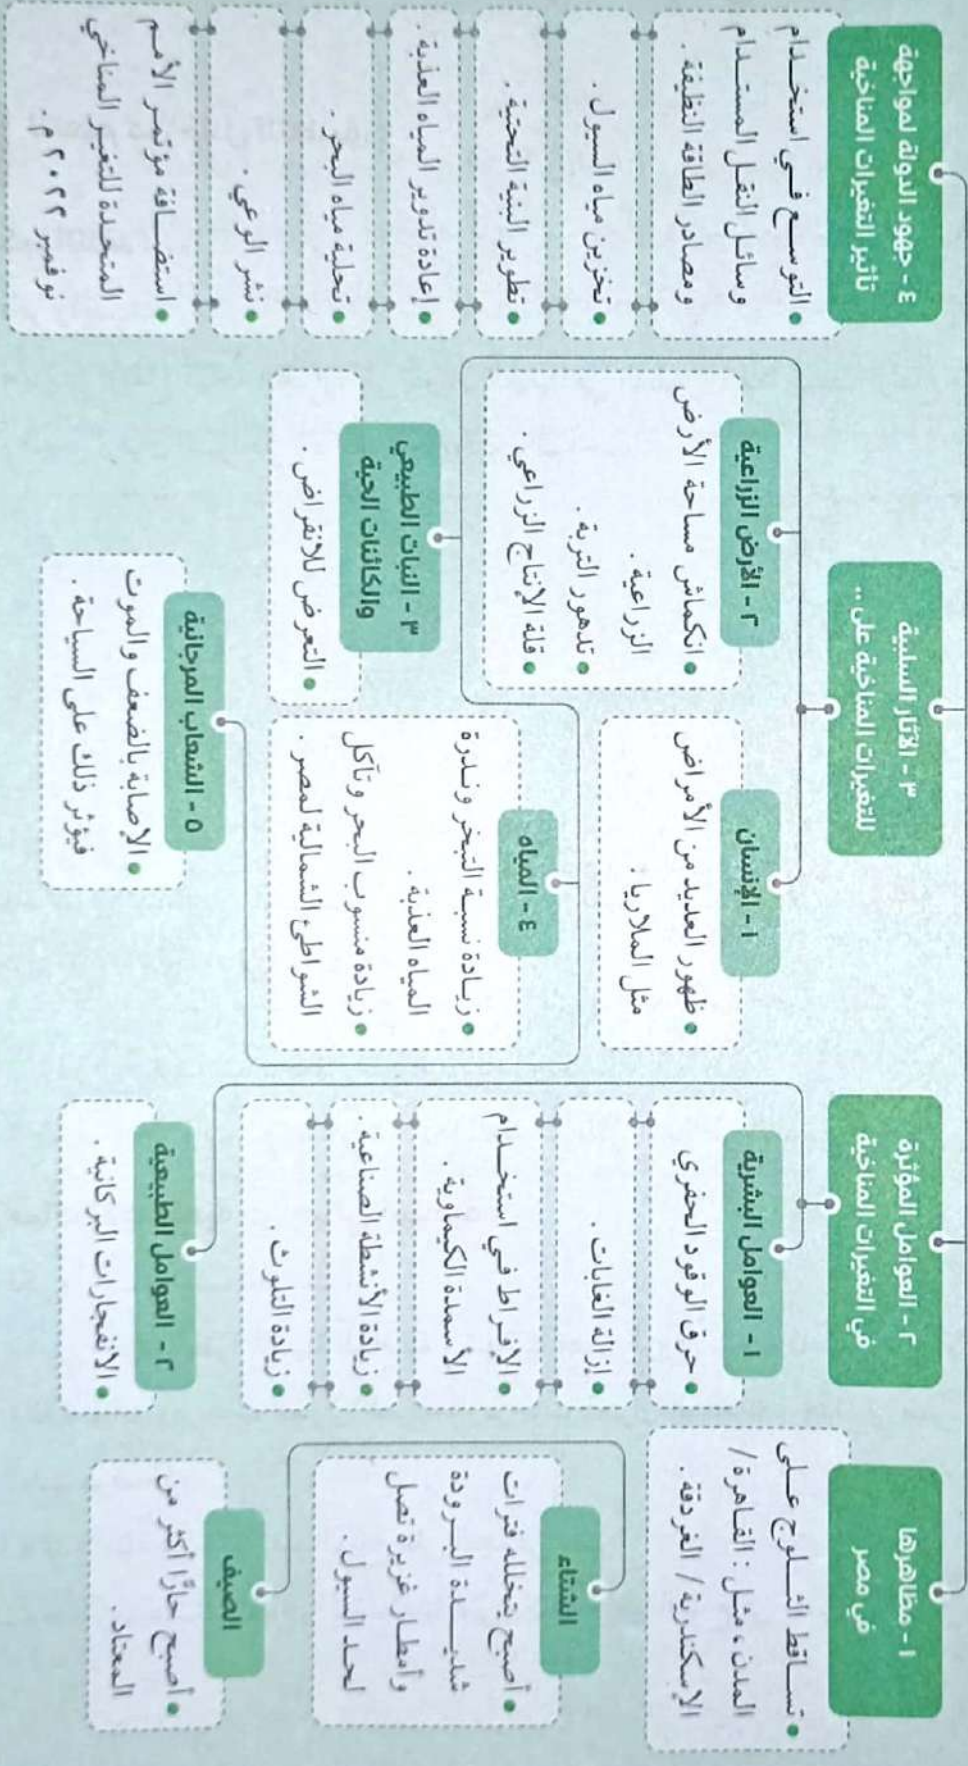 ١ - مظاهرها
في مصر
• تساقط الثلوج على
المدن، مثل: القاهرة /
الإسكندرية / الغردقة.
الشتاء
• أصبح يتخلله فترات
شديدة البرودة
وأمطار غزيرة تصل
لحد السيول.
الصيف
• أصبح حارًا أكثر من
المعتاد.
٢ - العوامل المؤثرة
في التغيرات المناخية
١ - العوامل البشرية
• حرق الوقود الحفري
• إزالة الغابات.
• الإفراط في استخدام
الأسمدة الكيماوية.
• زيادة الأنشطة الصناعية.
• زيادة التلوث.
٢ - العوامل الطبيعية
• الانفجارات البركانية.
٣ - الآثار السلبية
للتغيرات المناخية على ..
١ - الإنسان
• ظهور العديد من الأمراض
مثل الملاريا.
٢ - الأرض الزراعية
• انكماش مساحة الأرض
الزراعية.
• تدهور التربة.
• قلة الإنتاج الزراعي.
٣ - النبات الطبيعي
والكائنات الحية
• التعرض للانقراض.
٤ - المياه
• زيادة نسبة التبخر وندرة
المياه العذبة.
• زيادة منسوب البحر وتآكل
الشواطئ الشمالية لمصر.
٥ - الشعاب المرجانية
• الإصابة بالضعف والموت
فيؤثر ذلك على السياحة.
٤ - جهود الدولة لمواجهة
تأثير التغيرات المناخية
• التوسع في استخدام
وسائل النقل المستدام
ومصادر الطاقة النظيفة.
• تخزين مياه السيول.
• تطوير البنية التحتية.
• إعادة تدوير المياه العذبة.
• تحلية مياه البحر.
• نشر الوعي.
• استضافة مؤتمر الأمم
المتحدة للتغير المناخي
نوفمبر ٢٠٢٢ م.